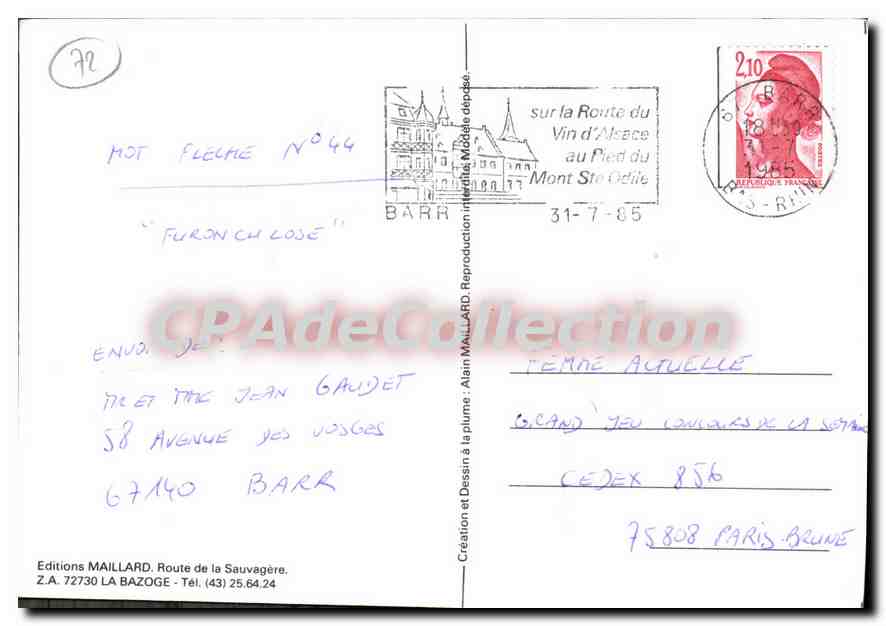 72
MOT FLECHE N° 44
"FURONCULOSE"
ENVOI DE:
MR ET MME JEAN GAUDET
58 AVENUE DES VOSGES
67140 BARR
Editions MAILLARD. Route de la Sauvagère.
Z.A. 72730 LA BAZOGE - Tél. (43) 25.64.24
Création et Dessin à la plume : Alain MAILLARD. Reproduction interdite. Modèle déposé.
sur la Route du
Vin d'Alsace
au Pied du
Mont Ste Odile
BARR 31-7-85
2,10
POSTES
REPUBLIQUE FRANÇAISE
67 BARR
18 H
31-7
1985
BAS-RHIN
CPAdeCollection
FEMME ACTUELLE
GRAND JEU CONCOURS DE LA SEMAINE
CEDEX 856
75808 PARIS-BRUNE